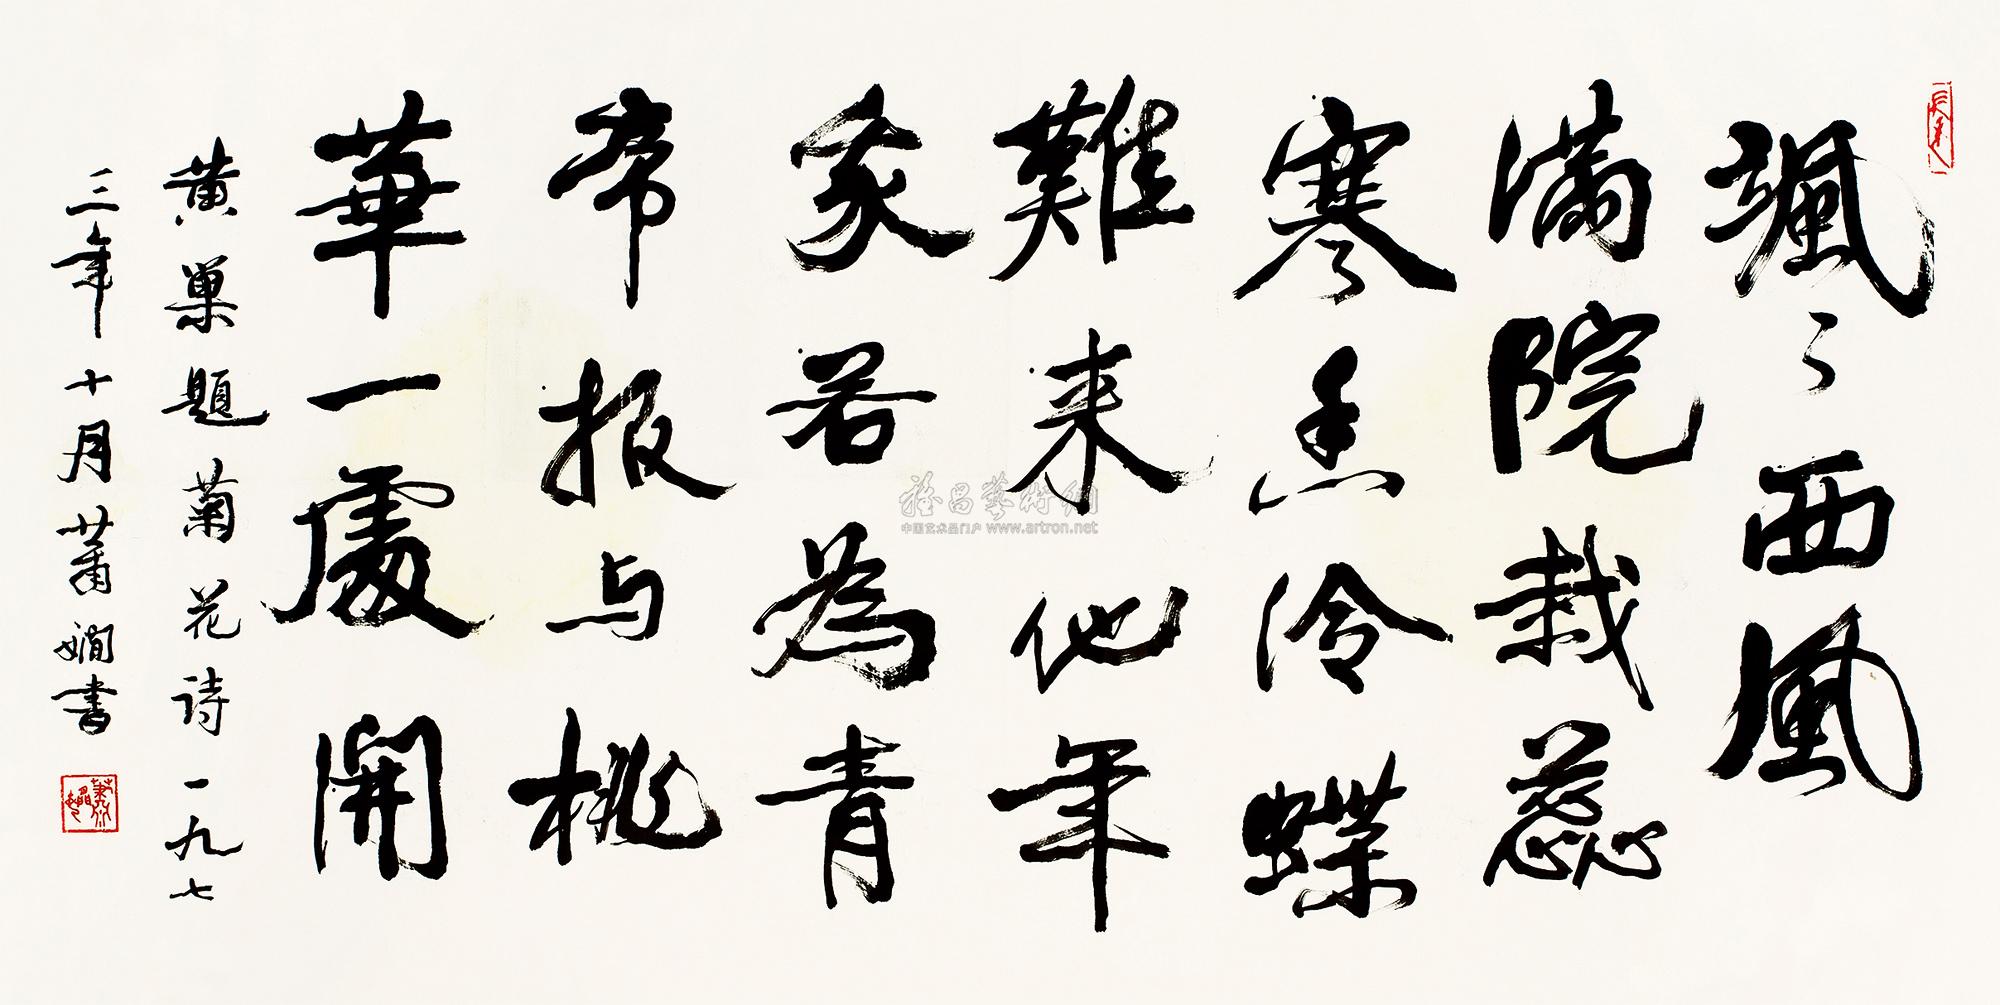 颯々西風
滿院栽蕊
寒香冷蝶
難来他年
我若為青
帝报与桃
華一處開
黄巢題菊花詩一九七
三年十月蕭嫻書
雅昌藝術網
中国艺术品门户 www.artron.net